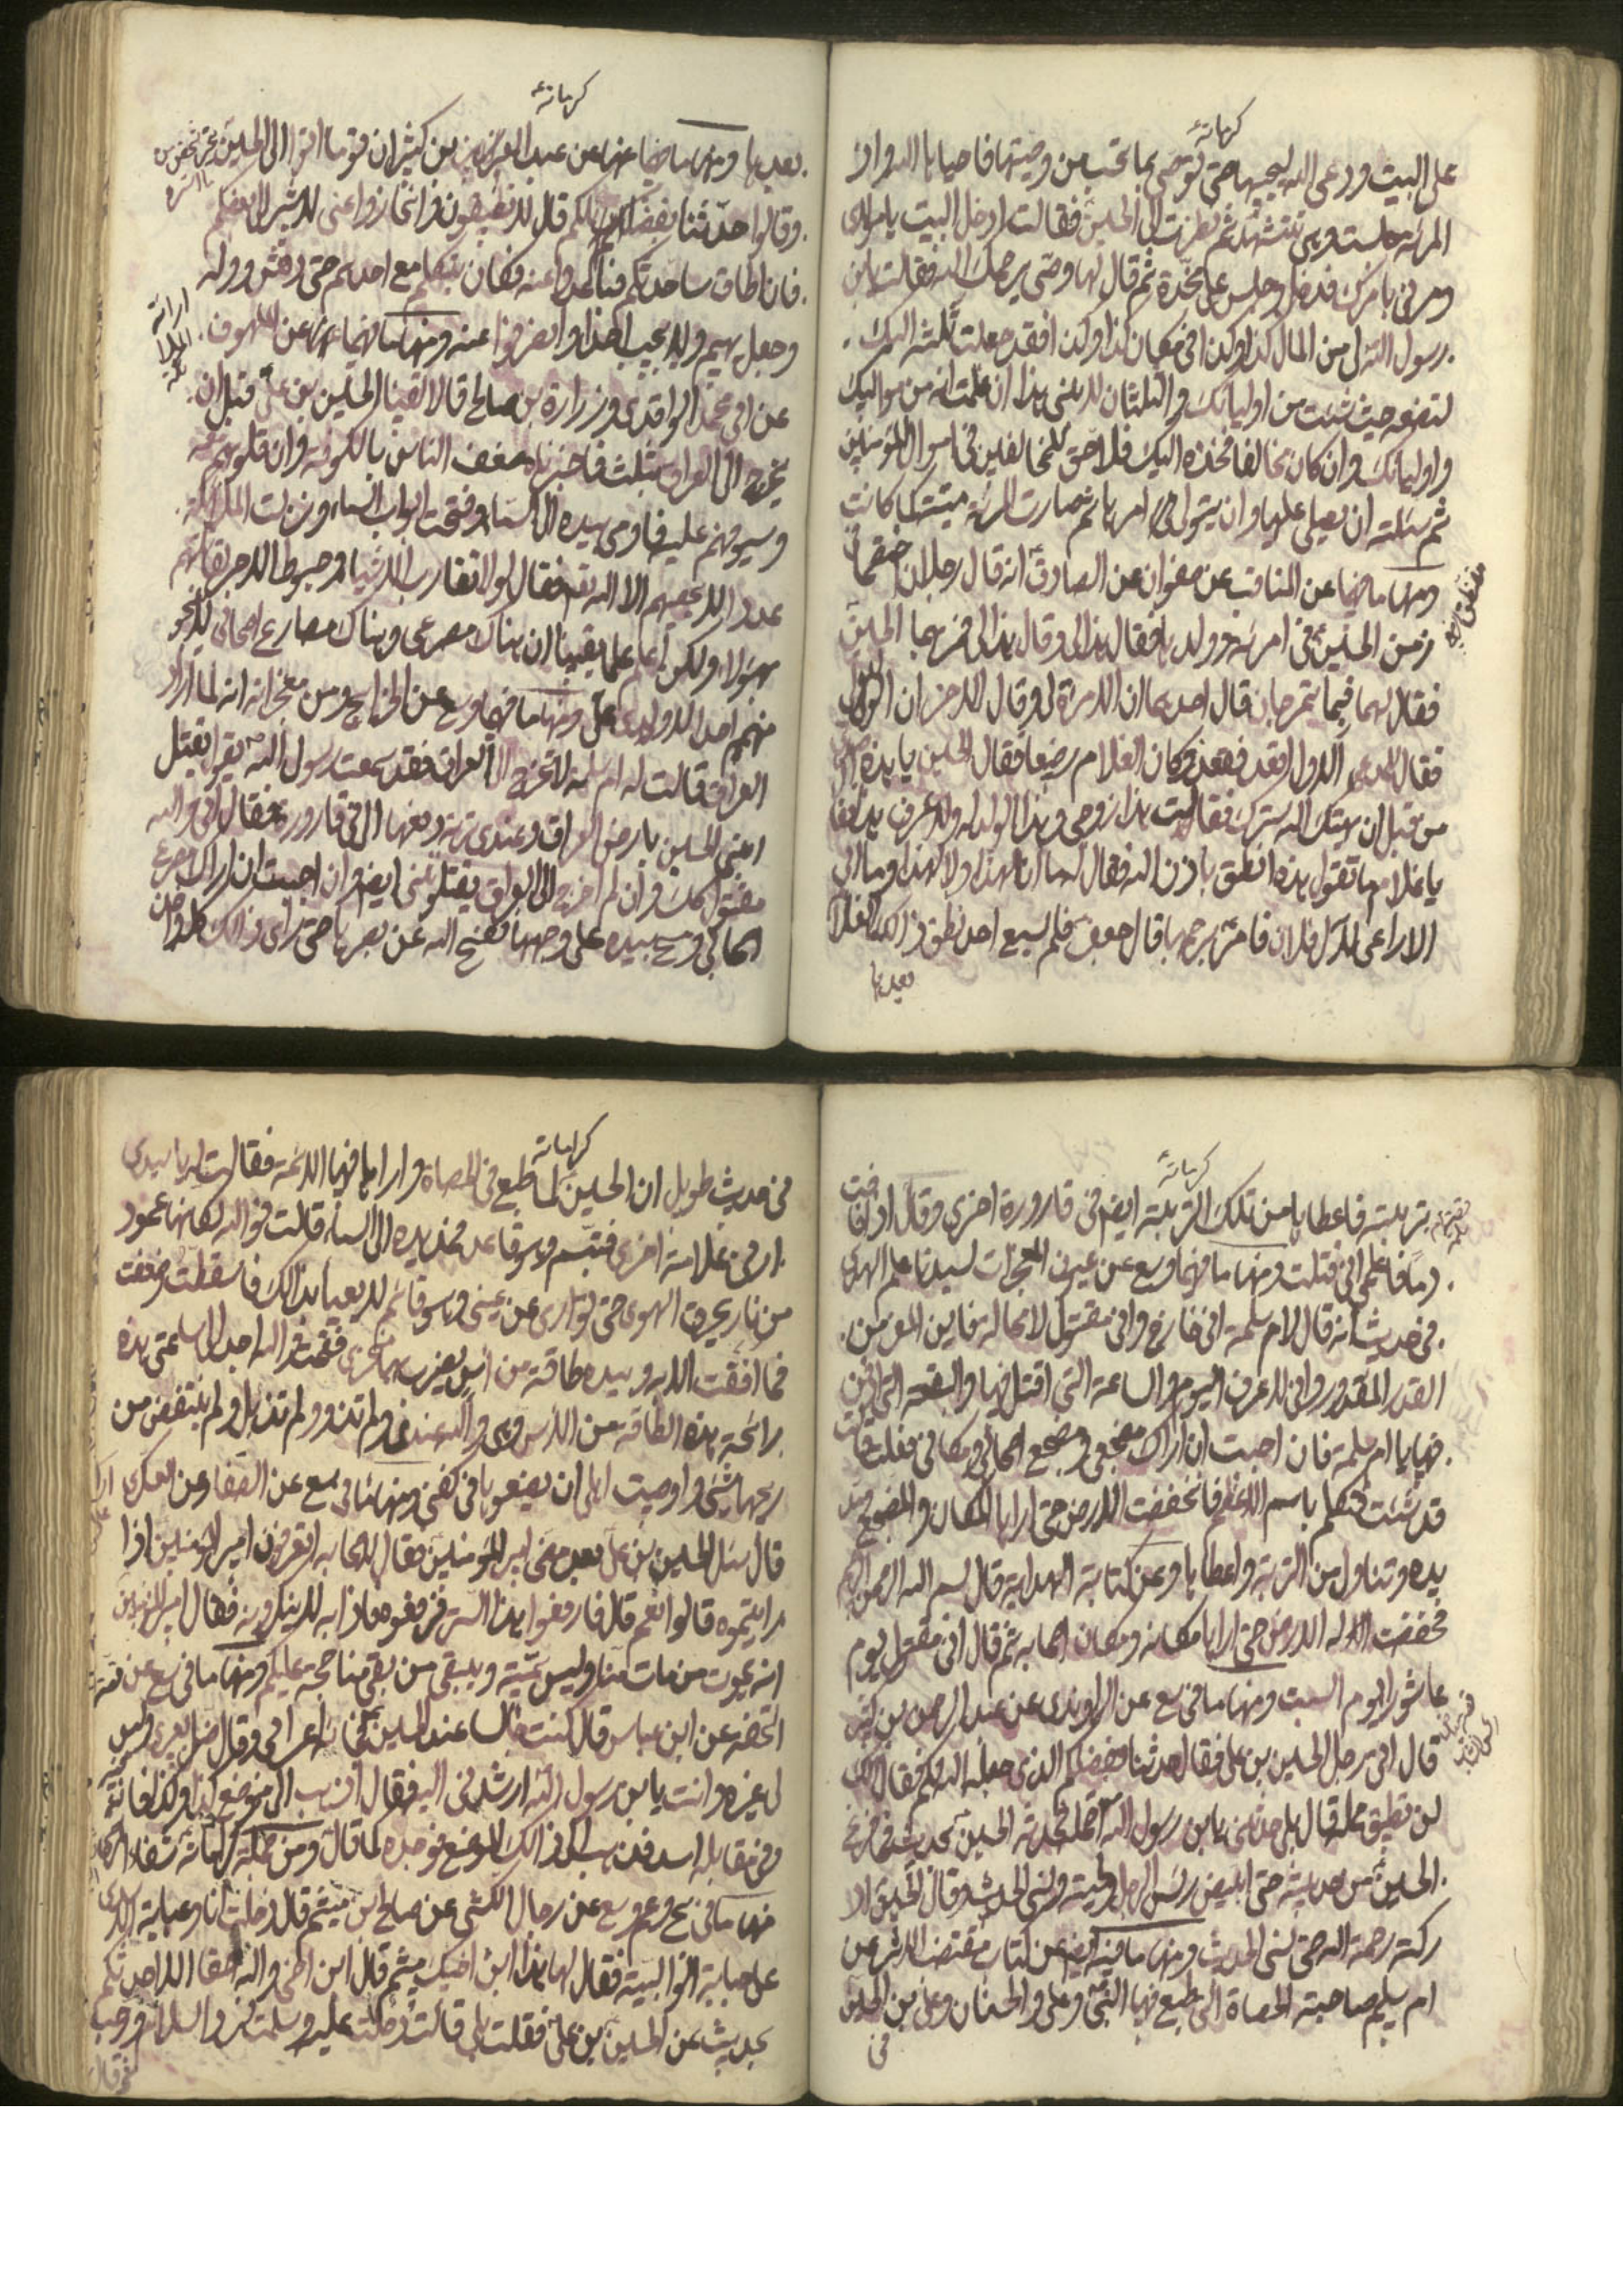 كراماته
على البيت ودعى الله ليحييها حتى توصى بما تحب من وصيتها فاحياها الله واذا
المرئة جلست وهى تتشهد ثم نظرت الى الحسين فقالت ادخل البيت يا مولاى
ومرنى بامرك فدخل وجلس على مخدة ثم قال لها وصى يرحمك الله فقالت يابن
رسول الله لى من المال كذا وكذا فى مكان كذا وكذا فقد جعلت ثلثه اليك
لتضعه حيث شئت من اوليائك والثلثان لابنى هذا ان علمت انه من مواليك
واوليائك وان كان مخالفا فخذه اليك فلا حق للمخالفين فى اموال المؤمنين
ثم سئلته ان يصلى عليها وان يتولى امرها ثم صارت المرئة ميتة كما كانت
ومنها ما فيها عن المناقب عن صفوان عن الصادق انه قال رجلان اختصما
زمن الحسين فى امرئة وولدها فقال هذا لى وقال هذا لى فمر بهما الحسين
فقال لهما فيما تمرجان قال احدهما ان الامرئة لى وقال الاخر ان الولد لى
فقال للمدعى الاول اقعد فقعد وكان الغلام رضيعا فقال الحسين يا هذه اصدقى
من قبل ان يهتك الله سترك فقالت هذا زوجى وهذا الولد له ولا اعرف هذا فقال
يا غلام ما تقول هذه انطق باذن الله فقال له ما انا لهذا ولا لهذا وما ابى
الا راعى لال فلان فامر برجمها قال جعفر فلم يسمع احد نطق ذالك الغلام
بعدها
كراماته
بعدها ومنها ما فيها عنه عن عبد العزيز بن كثير ان قوما اتوا الى الحسين
وقالوا حدثنا بفضائلكم قال لا تطيقون وانحازوا عنى لاشير الى بعضكم
فان اطاق ساحدثكم فتباعدوا عنه فكان يتكلم مع احدهم حتى دهش ووله
وجعل يهيم ولا يجيب احدا وانصرفوا عنه ومنها ما فيها عن اللهوف
عن ابى محمد الواقدى وزرارة بن صالح قالا لقينا الحسين بن على قبل ان
يخرج الى العراق بثلث فاخبرناه ضعف الناس بالكوفة وان قلوبهم معه
وسيوفهم عليه فاومى بيده الى السماء وفتحت ابواب السماء ونزلت الملائكة
عددا لا يحصيهم الا الله فقال لولا تقارب الاشياء وحبوط الاجر لقاتلتهم
بهؤلاء ولكن اعلم علما يقينا ان هناك مصرعى وهناك مصارع اصحابى لا ينجو
منهم احد الا ولدى على ومنها ما فيها وسع عن الخرايج ومن معجزاته انه لما اراد
العراق قالت له ام سلمة لا تخرج الى العراق فقد سمعت رسول الله يقول يقتل
ابنى الحسين بارض العراق وعندى تربة دفعها الى فى قارورة فقال انى والله
مقتول كذلك وان لم اخرج الى العراق يقتلوننى ايضا وان احببت ان اراك مصرع
اصحابى ومسح بيده على وجهها ففتح الله عن بصرها حتى راى ذالك كله واخذ
كراماته
تربة فاعطاها من تلك التربة ايضا فى قارورة اخرى وقال اذا فاضت
دما فاعلمى انى قتلت ومنها ما فيها وسع عن عيون المعجزات لسيدنا علم الهدى
فى حديث انه قال لام سلمة انى خارج وانى مقتول لا محالة فاين المفر من
القدر المقدور وانى لاعرف اليوم والساعة التى اقتل فيها والبقعة التى ادفن
فيها يا ام سلمة فان احببت ان اراك مضجعى ومضجع اصحابى ومكانى فقلت
قد شئت فتكلم باسم الاعظم فانخفضت الارض حتى اراها المكان والمضجع ومد
يده وتناول من التربة واعطاها وعن كتاب الهداية قال بسم الله الرحمن الرحيم
فخفضت له الارض حتى اراها مكانه ومكان اصحابه ثم قال انى مقتول يوم
عاشورا يوم السبت ومنها ما فى سع عن الراوندى عن عبد الرحمن بن كثير
قال اتى رجل الحسين بن على فقال حدثنا بفضلكم الذى جعله الله لكم فقال انك
لن تطيق حمله قال بلى حدثنى يابن رسول الله احتمله فحدثه الحسين بحديث فما فرغ
الحسين من حديثه حتى ابيض راس الرجل ولحيته ونسى الحديث وقال الحسين ادر
ركته رحمة الله حتى نسى الحديث ومنها ما فيه ايضا عن كتاب مقتضب الاثر عن
ام سليم صاحبة الحصاة التى طبع فيها النبى وعلى والحسنان وعلى بن الحسين
فى
كراماته
فى حديث طويل ان الحسين لما طبع فى الحصاة واراها فيها الائمة فقالت له يا سيدى
ارنى علامة اخرى فتبسم وهو قاعد فمد يده الى السماء قالت فوالله لكانها عمود
من نار يخرق الهوى حتى توارى عن عينى وهو قائم لا يعبا بذالك فاسقطت وضعفت
فما افقت الا به وبيده طاقة من آس يضرب بها منخرى فقمت والله اجد الى ساعتى هذه
رائحة هذه الطاقة من الاس وهى والله عندى ولم تذو ولم تذبل ولم ينتقص من
ريحها شئ واوصيت اهلى ان يضعوها فى كفنى ومنها ما فى سع عن الصفار عن
قال سئل الحسين بن على بعد مضى امير المؤمنين فقال لاصحابه اتعرفون امير المؤمنين اذا
رايتموه قالوا نعم قال فارفعوا هذا الستر فرفعوه فاذا به لا ينكرونه فقال امير المؤمنين
انه يموت من مات منا وليس بميت ويبقى من بقى منا حجة عليكم ومنها ما فى سع عن
عن ابن عباس قال كنت جالسا عند الحسين فجائه اعرابى وقال ضل بعيرى وليس
لى غيره وانت يابن رسول الله ارشدنى اليه فقال اذهب الى موضع كذا وكذا فانه
وفى مقابله اسد فذهب الى ذالك الموضع فوجده كما قال ومن جملة كراماته
منها ما فى سع عن رجال الكشى عن صالح بن ميثم قال دخلت انا وعباية الاسدى
على حبابة الوالبية فقال لها هذا ابن اخيك ميثم قال ابن اخى والله حقا الا احدثكم
بحديث عن الحسين بن على فقلت بلى قالت دخلت عليه وسلمت فرد السلام ورحب